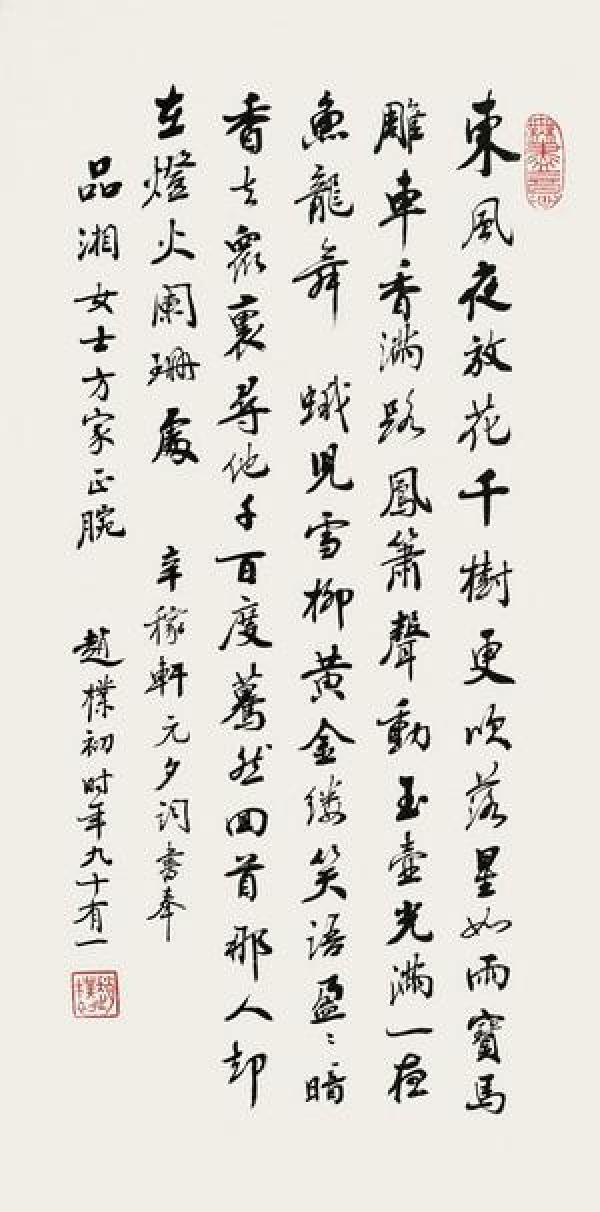 無盡意
東風夜放花千樹更吹落星如雨寶馬
雕車香滿路鳳簫聲動玉壺光滿一夜
魚龍舞 蛾兒雪柳黃金縷笑語盈〻暗
香去衆裏尋他千百度驀然回首那人却
在燈火闌珊處 辛稼軒元夕詞書奉
品湘女士方家正腕 趙樸初时年九十有一
趙樸初